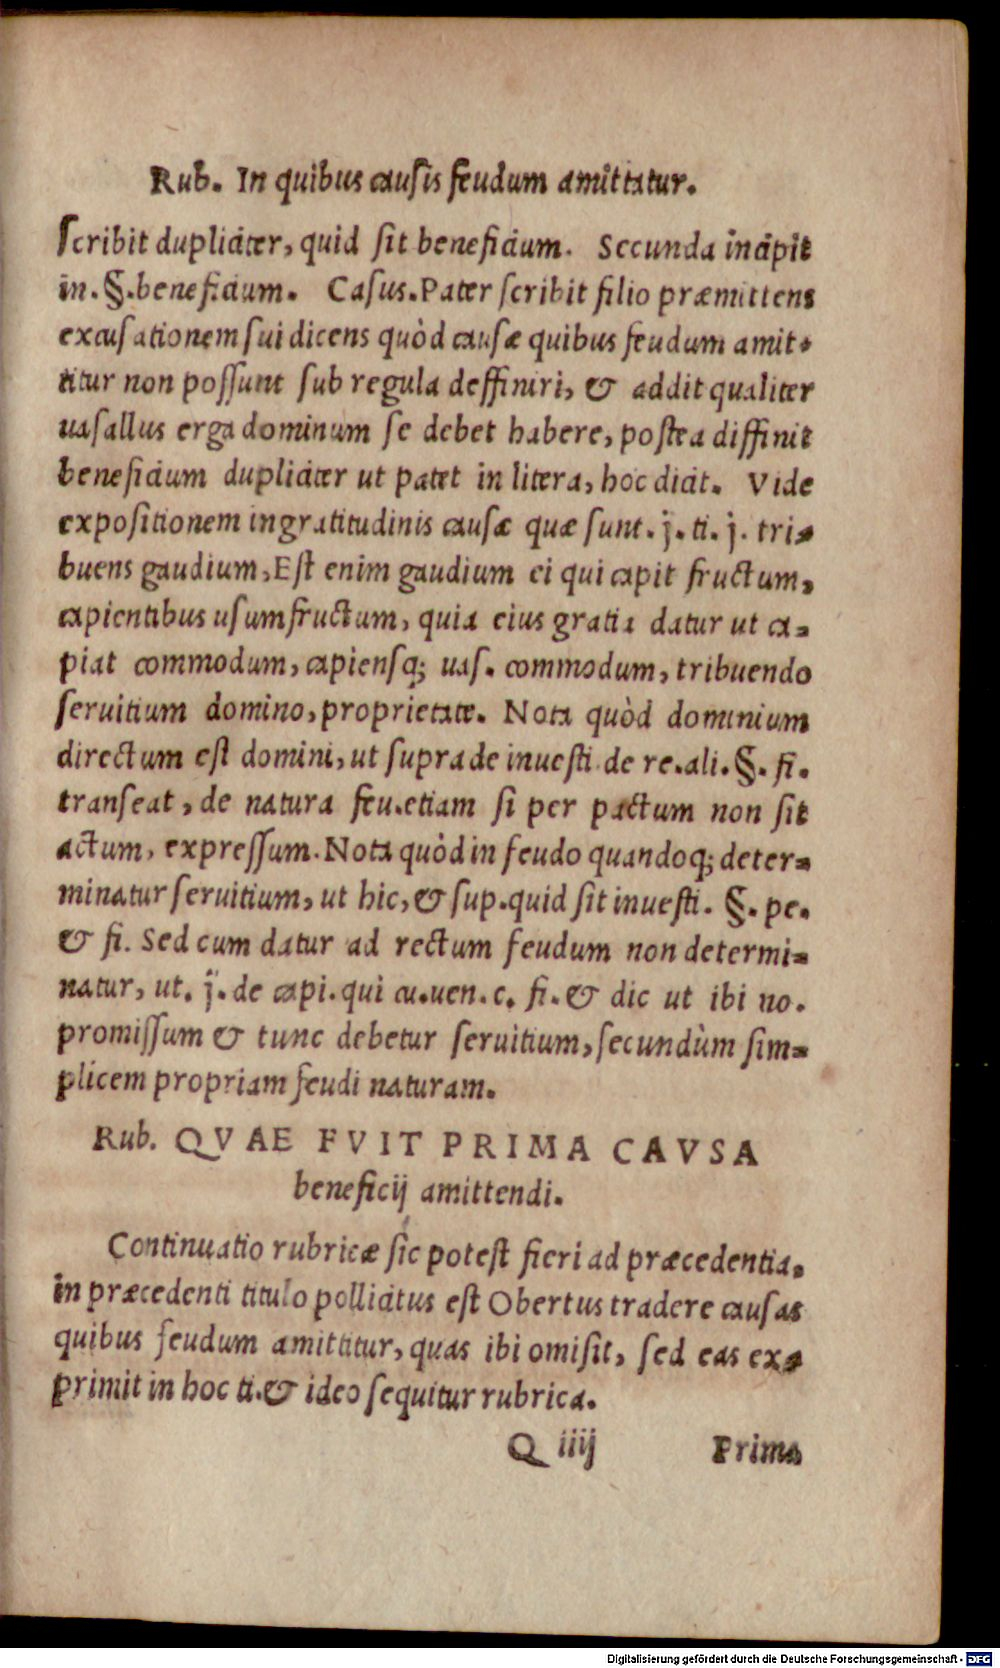 Rub. In quibus causis feudum amittatur.
scribit dupliciter, quid sit beneficium. Secunda incipit
in. §. beneficium. Casus. Pater scribit filio præmittens
excusationem sui dicens quòd causæ quibus feudum amit-
titur non possunt sub regula deffiniri, & addit qualiter
uasallus erga dominum se debet habere, postea diffinit
beneficium dupliciter ut patet in litera, hoc dicit. Vide
expositionem ingratitudinis causæ quæ sunt. j. ti. j. tri-
buens gaudium, Est enim gaudium ei qui capit fructum,
capientibus usumfructum, quia eius gratia datur ut ca-
piat commodum, capiensq; uas. commodum, tribuendo
seruitium domino, proprietate. Nota quòd dominium
directum est domini, ut supra de inuesti de re. ali. §. fi.
transeat, de natura feu. etiam si per pactum non sit
actum, expressum. Nota quòd in feudo quandoq; deter-
minatur seruitium, ut hic, & sup. quid sit inuesti. §. pe.
& fi. Sed cum datur ad rectum feudum non determi-
natur, ut. j. de capi. qui cu. uen. c. fi. & dic ut ibi no.
promissum & tunc debetur seruitium, secundùm sim-
plicem propriam feudi naturam.
Rub. QVAE FVIT PRIMA CAVSA
beneficij amittendi.
Continuatio rubricæ sic potest fieri ad præcedentia.
in præcedenti titulo pollicitus est Obertus tradere causas
quibus feudum amittitur, quas ibi omisit, sed eas ex-
primit in hoc ti. & ideo sequitur rubrica.
Q iiij Prima
Digitalisierung gefördert durch die Deutsche Forschungsgemeinschaft - DFG